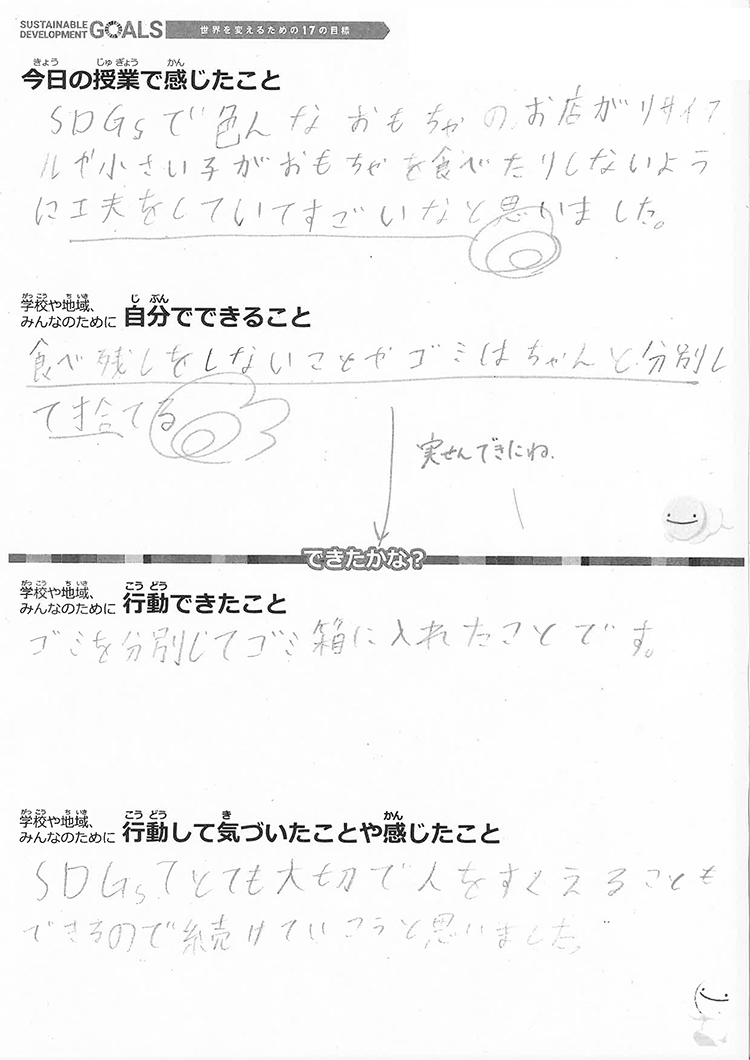 SUSTAINABLE DEVELOPMENT GOALS
世界を変えるための17の目標
今日の授業で感じたこと
きょう じゅぎょう かん
SDGsで色んなおもちゃのお店がリサイク
ルや小さい子がおもちゃを食べたりしないよう
に工夫をしていてすごいなと思いました。
学校や地域、
がっこう ちいき
みんなのために 自分でできること
じぶん
食べ残しをしないことやゴミはちゃんと分別し
て捨てる
実せんできにね.
できたかな?
学校や地域、
がっこう ちいき
みんなのために 行動できたこと
こうどう
ゴミを分別してゴミ箱に入れたことです。
学校や地域、
がっこう ちいき
みんなのために 行動して気づいたことや感じたこと
こうどう き かん
SDGsてとても大切で人をすくえることも
できるので続けていこうと思いました。